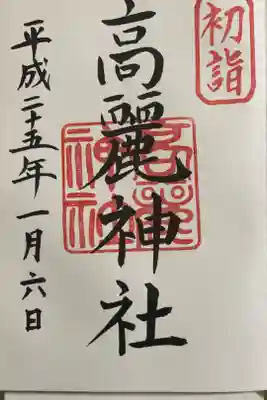 初詣
高麗神社
高麗神社
平成二十五年一月六日